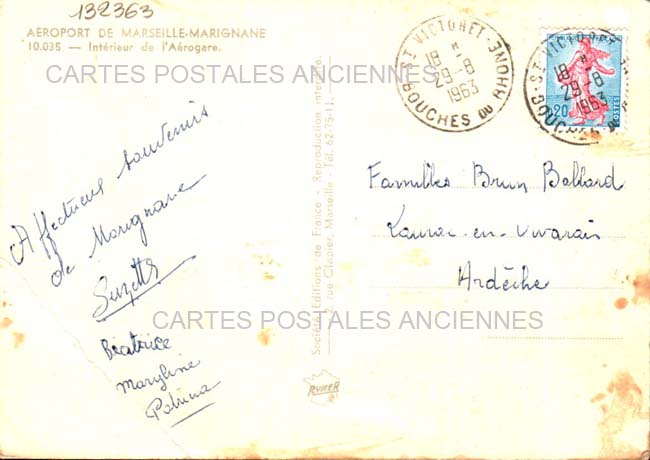 132363
AÉROPORT DE MARSEILLE-MARIGNANE
10.035 — Intérieur de l'Aérogare.
CARTES POSTALES ANCIENNES
Affectueux souvenirs
de Marignane
Suzette
Béatrice
Maryline
Patricia
Société Editions de France - Reproduction interdite.
2, rue Clapier, Marseille - Tél. 62-75-11
RYNER
ST VICTORET
18 H
29-8
1963
BOUCHES DU RHONE
ST VICTORET
18 H
29-8
1963
BOUCHES DU RHONE
0,20
Familles Brun Ballard
Lanas-en-Vivarais
Ardèche
CARTES POSTALES ANCIENNES